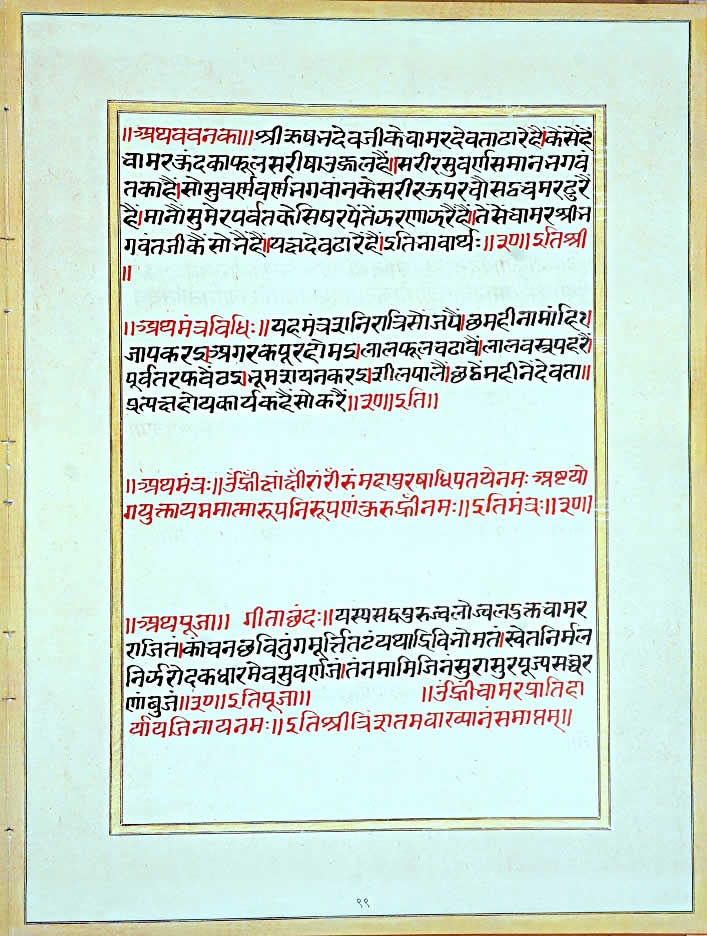 ॥अथ वचनका॥ श्री ऋषभदेवजी के चामर देवता ढारे है। कैसे है
चामर कुंद का फूल सरीषा उज्जल है॥ सरीर सुवर्ण समान भगवं
त का है। सो सुवर्णवर्ण भगवांन के सरीर ऊपर चौसठ चमर ढुरै
है। मानौ सुमेर पर्वत के सिषर पैतें झरणा झरै है। तैसें चामर श्री भ
गवंतजी कै सोभै है। यक्ष देव ढारें है। इति भावार्थः॥३०॥ इति श्री
॥
॥अथ मंत्रविधिः॥ यह मंत्र रानि रात्रि सौ जपै। छ महीना मांहि
जाप करइ। अगर कपूर होमइ। लाल फूल चढावै। लाल वस्त्र पहरै।
पूर्व तरफ बैठइ। भूम शयन करइ। शील पालै। छठे महीनै देवता॥
प्रत्यक्ष होय कार्य कहै सो करै॥३०॥ इति॥
॥अथ मंत्रः॥ उँ ह्रीं क्षां क्षीं रां रीं रुं महापुरुषाधिपतये नमः अष्ट यो
ग युक्ताय प्रमात्मारूप निरूपणं कुरु ह्रीं नमः॥ इति मंत्रः॥३०॥
॥अथ पूजा॥ गीता छंदः॥ यस्य सद्वपुरुज्वलोज्वल इक्त चामर
राजितं। कांचन छवि तुंग मूर्त्ति तटं यथा द्रि विनोमतं। स्वेत निर्मल
निर्झरोदक धारमेव सुवर्णजं। तं नमामि जिनं सुरासुर पूज्य सच्चर
णांबुजं॥३०॥ इति पूजा॥ ॥उँ ह्रीं चामर प्रातिहा
र्याय जिनाय नमः॥ इति श्री त्रिंशतम व्याख्यानं समाप्तम्॥
९९